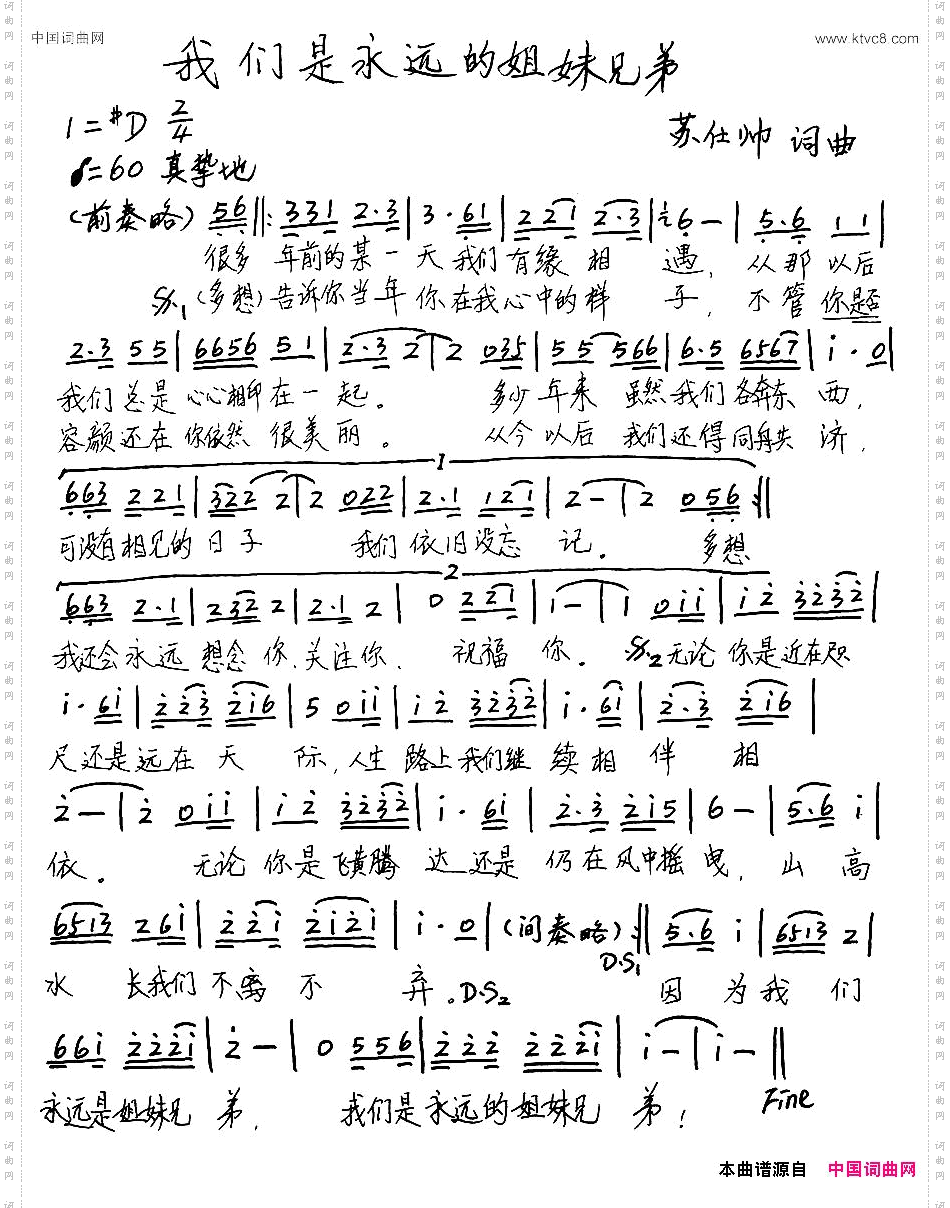 中国词曲网 www.ktvc8.com
我们是永远的姐妹兄弟
1=#D 2/4
苏仕帅 词曲
♩=60 真挚地
(前奏略) 56 ‖: 331 2·3 | 3·61 | 221 2·3 | 6 — | 5·6 11 |
很多 年前的某一天我们有缘相 遇, 从那以后
𝄋1 (多想)告诉你当年你在我心中的样 子, 不管你是否
2·3 55 | 6656 51 | 2·3 2 | 2 035 | 55 566 | 6·5 6567 | i·0 |
我们总是心心相印在一起。 多少年来 虽然我们各奔东 西,
容颜还在你依然很美丽。 从今以后 我们还得同舟共 济,
1
663 221 | 322 2 | 2 022 | 2·1 121 | 2 — | 2 056 :‖
可没有相见的日子 我们依旧没忘 记。 多想
2
663 2·1 | 232 2 | 2·1 2 | 0 221 | i — | i 0ii | i2 3232 |
我还会永远想念你.关注你. 祝福 你。 𝄋2 无论 你是近在咫
i·6i | 223 2i6 | 5 0ii | i2 3232 | i·6i | 2·3 2i6 |
尺还是远在天 际,人生路上我们继续相伴 相
2 — | 2 0ii | i2 3232 | i·6i | 2·3 2i5 | 6 — | 5·6 i |
依。 无论你是飞黄腾达还是仍在风中摇曳, 山高
6513 26i | 22i 2i2i | i·0 | (间奏略) :‖ 5·6 i | 6513 2 |
D.S1
水 长我们不离不 弃。D.S2 因 为我 们
66i 222i | 2 — | 0 556 | 222 222i | i — | i — ‖
永远是姐妹兄 弟, 我们是永远的姐妹兄 弟! Fine
本曲谱源自 中国词曲网